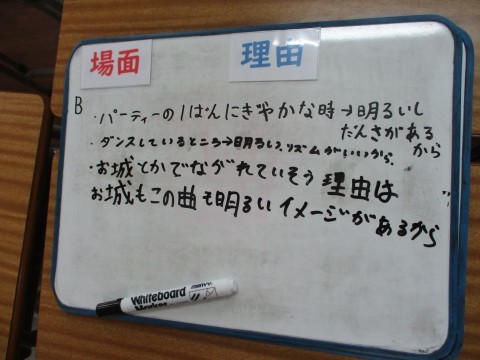 場面 理由
B
・パーティーの1ばんにぎやかな時→明るいし
だんさがある
から
・ダンスしているところ→明るいし、リズムがいいから。
・お城とかでながれていそう 理由は
お城もこの曲も明るいイメージがあるから
Whiteboard
Marker